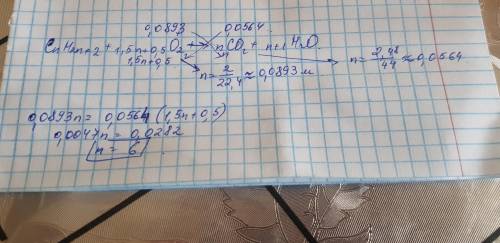 0,0893 0,0564
CnH2n+2 + 1,5n+0,5 O2 → nCO2 + n+1 H2O
1,5n+0,5 n
n = 2/22,4 ≈ 0,0893 м
n = 2,48/44 ≈ 0,0564
0,0893n = 0,0564 (1,5n+0,5)
0,0047n = 0,0282
n = 6